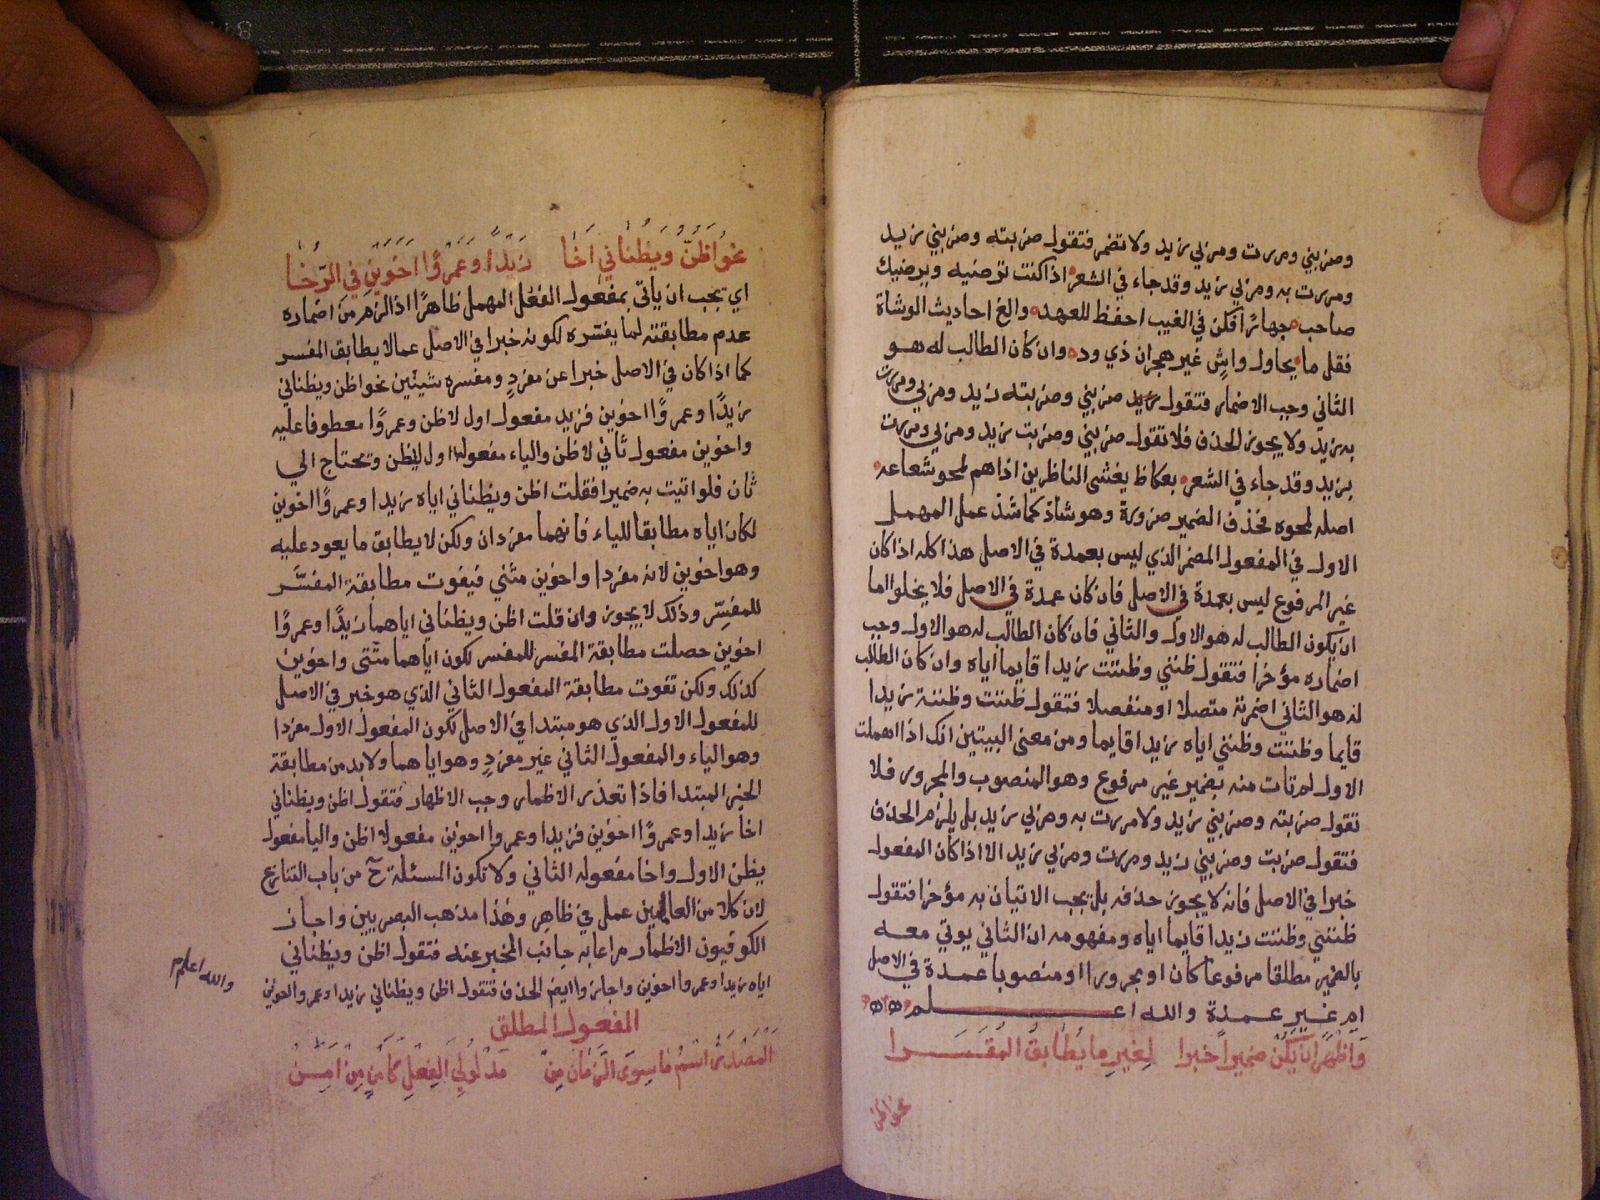 وضربني ومررت ومر بي زيد ولا تضمر فتقول ضربته وضربني زيد
ومررت به ومر بي زيد وقد جاء في الشعر اذا كنت ترضيه ويرضيك
صاحب جهارا فكن في الغيب احفظ للعهد والغ احاديث الوشاة
فقلما يحاول واشٍ غير هجران ذي ود وان كان الطالب له هو
الثاني وجب الاضمار فتقول ضربني وضربته زيد ومر بي ومررت
به زيد ولا يجوز الحذف فلا تقول ضربني وضربت زيد ومر بي ومررت
بزيد وقد جاء في الشعر بعكاظ يغشى الناظرين اذا هم لمحو شعاعه
اصله لمحوه فحذف الضمير ضرورة وهو شاذ كما شذ عمل المهمل
الاول في المفعول المضمر الذي ليس بعمدة في الاصل هذا كله اذا كان
غير المرفوع ليس بعمدة في الاصل فان كان عمدة في الاصل فلا يخلوا اما
ان يكون الطالب له هو الاول والثاني فان كان الطالب له هو الاول وجب
اضماره مؤخرا فتقول ظنني وظننت زيدا قايما اياه وان كان الطالب
له هو الثاني اضمرته متصلا او منفصلا فتقول ظننت وظننته زيدا
قايما وظننت وظنني اياه زيدا قايما ومن معنى البيتين انك اذا اهملت
الاول لم تات منه بضمير غير مرفوع وهو المنصوب والمجرور فلا
تقول ضربته وضربني زيد ولا مررت به ومر بي زيد بل يلزم الحذف
فتقول ضربت وضربني زيد ومررت ومر بي زيد الا اذا كان المفعول
خبرا في الاصل فانه لا يجوز حذفه بل يجب الاتيان به مؤخرا فتقول
ظننني وظننت زيدا قايما اياه ومفهومه ان الثاني يوتي معه
بالضمير مطلقا مرفوعا كان او مجرورا او منصوبا عمدة في الاصل
ام غير عمدة والله اعلم
وَاظْهِر ان يَكُنْ ضميرا خبرا لِغيرِ ما يُطَابِقُ المُفَسَّرا
نحو اظن
نحو اَظُنُّ وَيَظُنَّاني اَخَا زَيْدًا وَعَمْرًوا اخوَيْنِ في الرَّخَا
اي يجب ان ياتى بمفعول الفعل المهمل ظاهرًا اذا لزم من اضماره
عدم مطابقته لما يفسّره لكونه خبرا في الاصل عما لا يطابق المفسر
كما اذا كان في الاصل خبرا عن مفردٍ ومفسره شيئين نحو اظن ويظناني
زيدًا وعمروًا اخوين فزيد مفعول اول لاظن وعمروًا معطوفا عليه
واخوين مفعول ثاني لاظن والياء مفعول اول ليظن ويحتاج الي
ثان فلو اتيت به ضميرا فقلت اظن ويظناني اياه زيدا وعمروًا اخوين
لكان اياه مطابقا للياء فانهما مفردان ولكن لا يطابق ما يعود عليه
وهو اخوين لانه مفردا واخوين مثني فيفوت مطابقة المفسَّر
للمفسِّر وذلك لا يجوز وان قلت اظن ويظناني اياهما زيدًا وعمروًا
اخوين حصلت مطابقة المفسر للمفسر لكون اياهما مثنى واخوين
كذلك ولكن تفوت مطابقة المفعول الثاني الذي هو خبر في الاصل
للمفعول الاول الذي هو مبتدا في الاصل لكون المفعول الاول مفردا
وهو الياء والمفعول الثاني غير مفردٍ وهو اياهما ولا بد من مطابقة
الخبر المبتدا فاذا تعذر الاضمار وجب الاظهار فتقول اظن ويظناني
اخا زيدا وعمروًا اخوين فزيدا وعمروا اخوين مفعولا اظن واليا مفعول
يظن الاول واخا مفعوله الثاني ولا تكون المسئلة ح من باب التنازع
لان كلا من العاملين عمل في ظاهر وهذا مذهب البصريين واجاز
الكوفيون الاظمار مراعا به جانب المخبر عنه فتقول اظن ويظناني
اياه زيدا وعمروا اخوين واجازوا ايضا الحذف فتقول اظن ويظناني زيدا وعمروا اخوين
والله اعلم
المفعول المطلق
المَصْدَرُ اسْمُ مَا سِوَى الزَّمَانِ مِنْ مَدْلُولَيِ الفِعْلِ كَأَمْنٍ مِنْ اَمِنْ